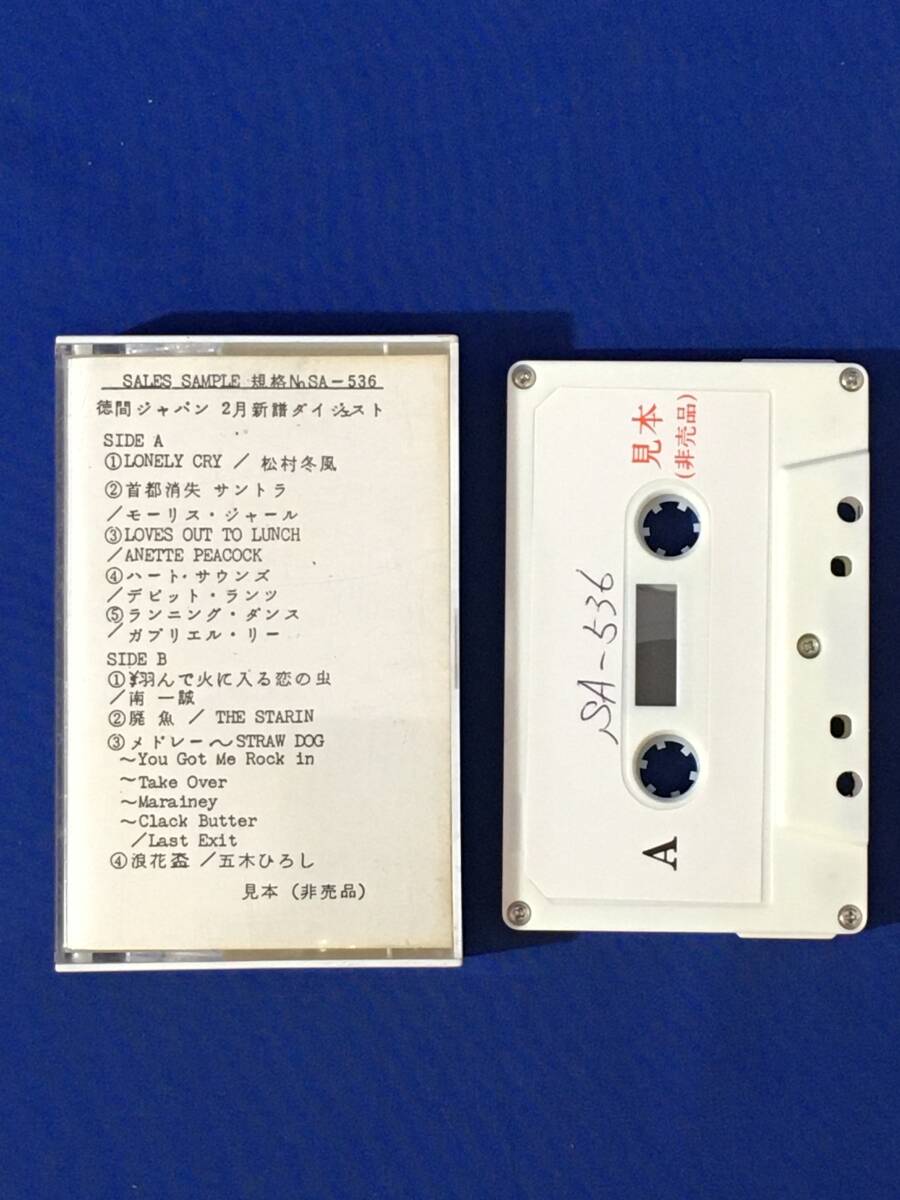 SALES SAMPLE 規格№SA-536
徳間ジャパン 2月新譜ダイジェスト
SIDE A
①LONELY CRY / 松村冬風
②首都消失 サントラ
/モーリス・ジャール
③LOVES OUT TO LUNCH
/ANETTE PEACOCK
④ハート・サウンズ
/デビット・ランツ
⑤ランニング・ダンス
/ガブリエル・リー
SIDE B
①翔んで火に入る恋の虫
/南 一誠
②廃 魚 / THE STARIN
③メドレー～STRAW DOG
～You Got Me Rock in
～Take Over
～Marainey
～Clack Butter
/Last Exit
④浪花盃 /五木ひろし
見本 (非売品)
見本
(非売品)
SA-536
A